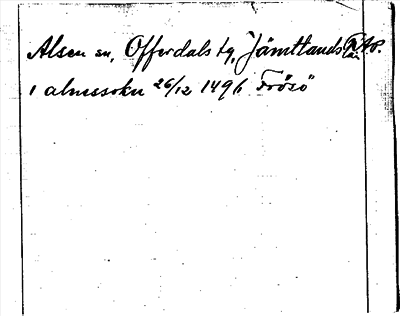 Alsen sn, Offerdals tg, Jämtlands län
i alnessokn 26/12 1496 Frösö